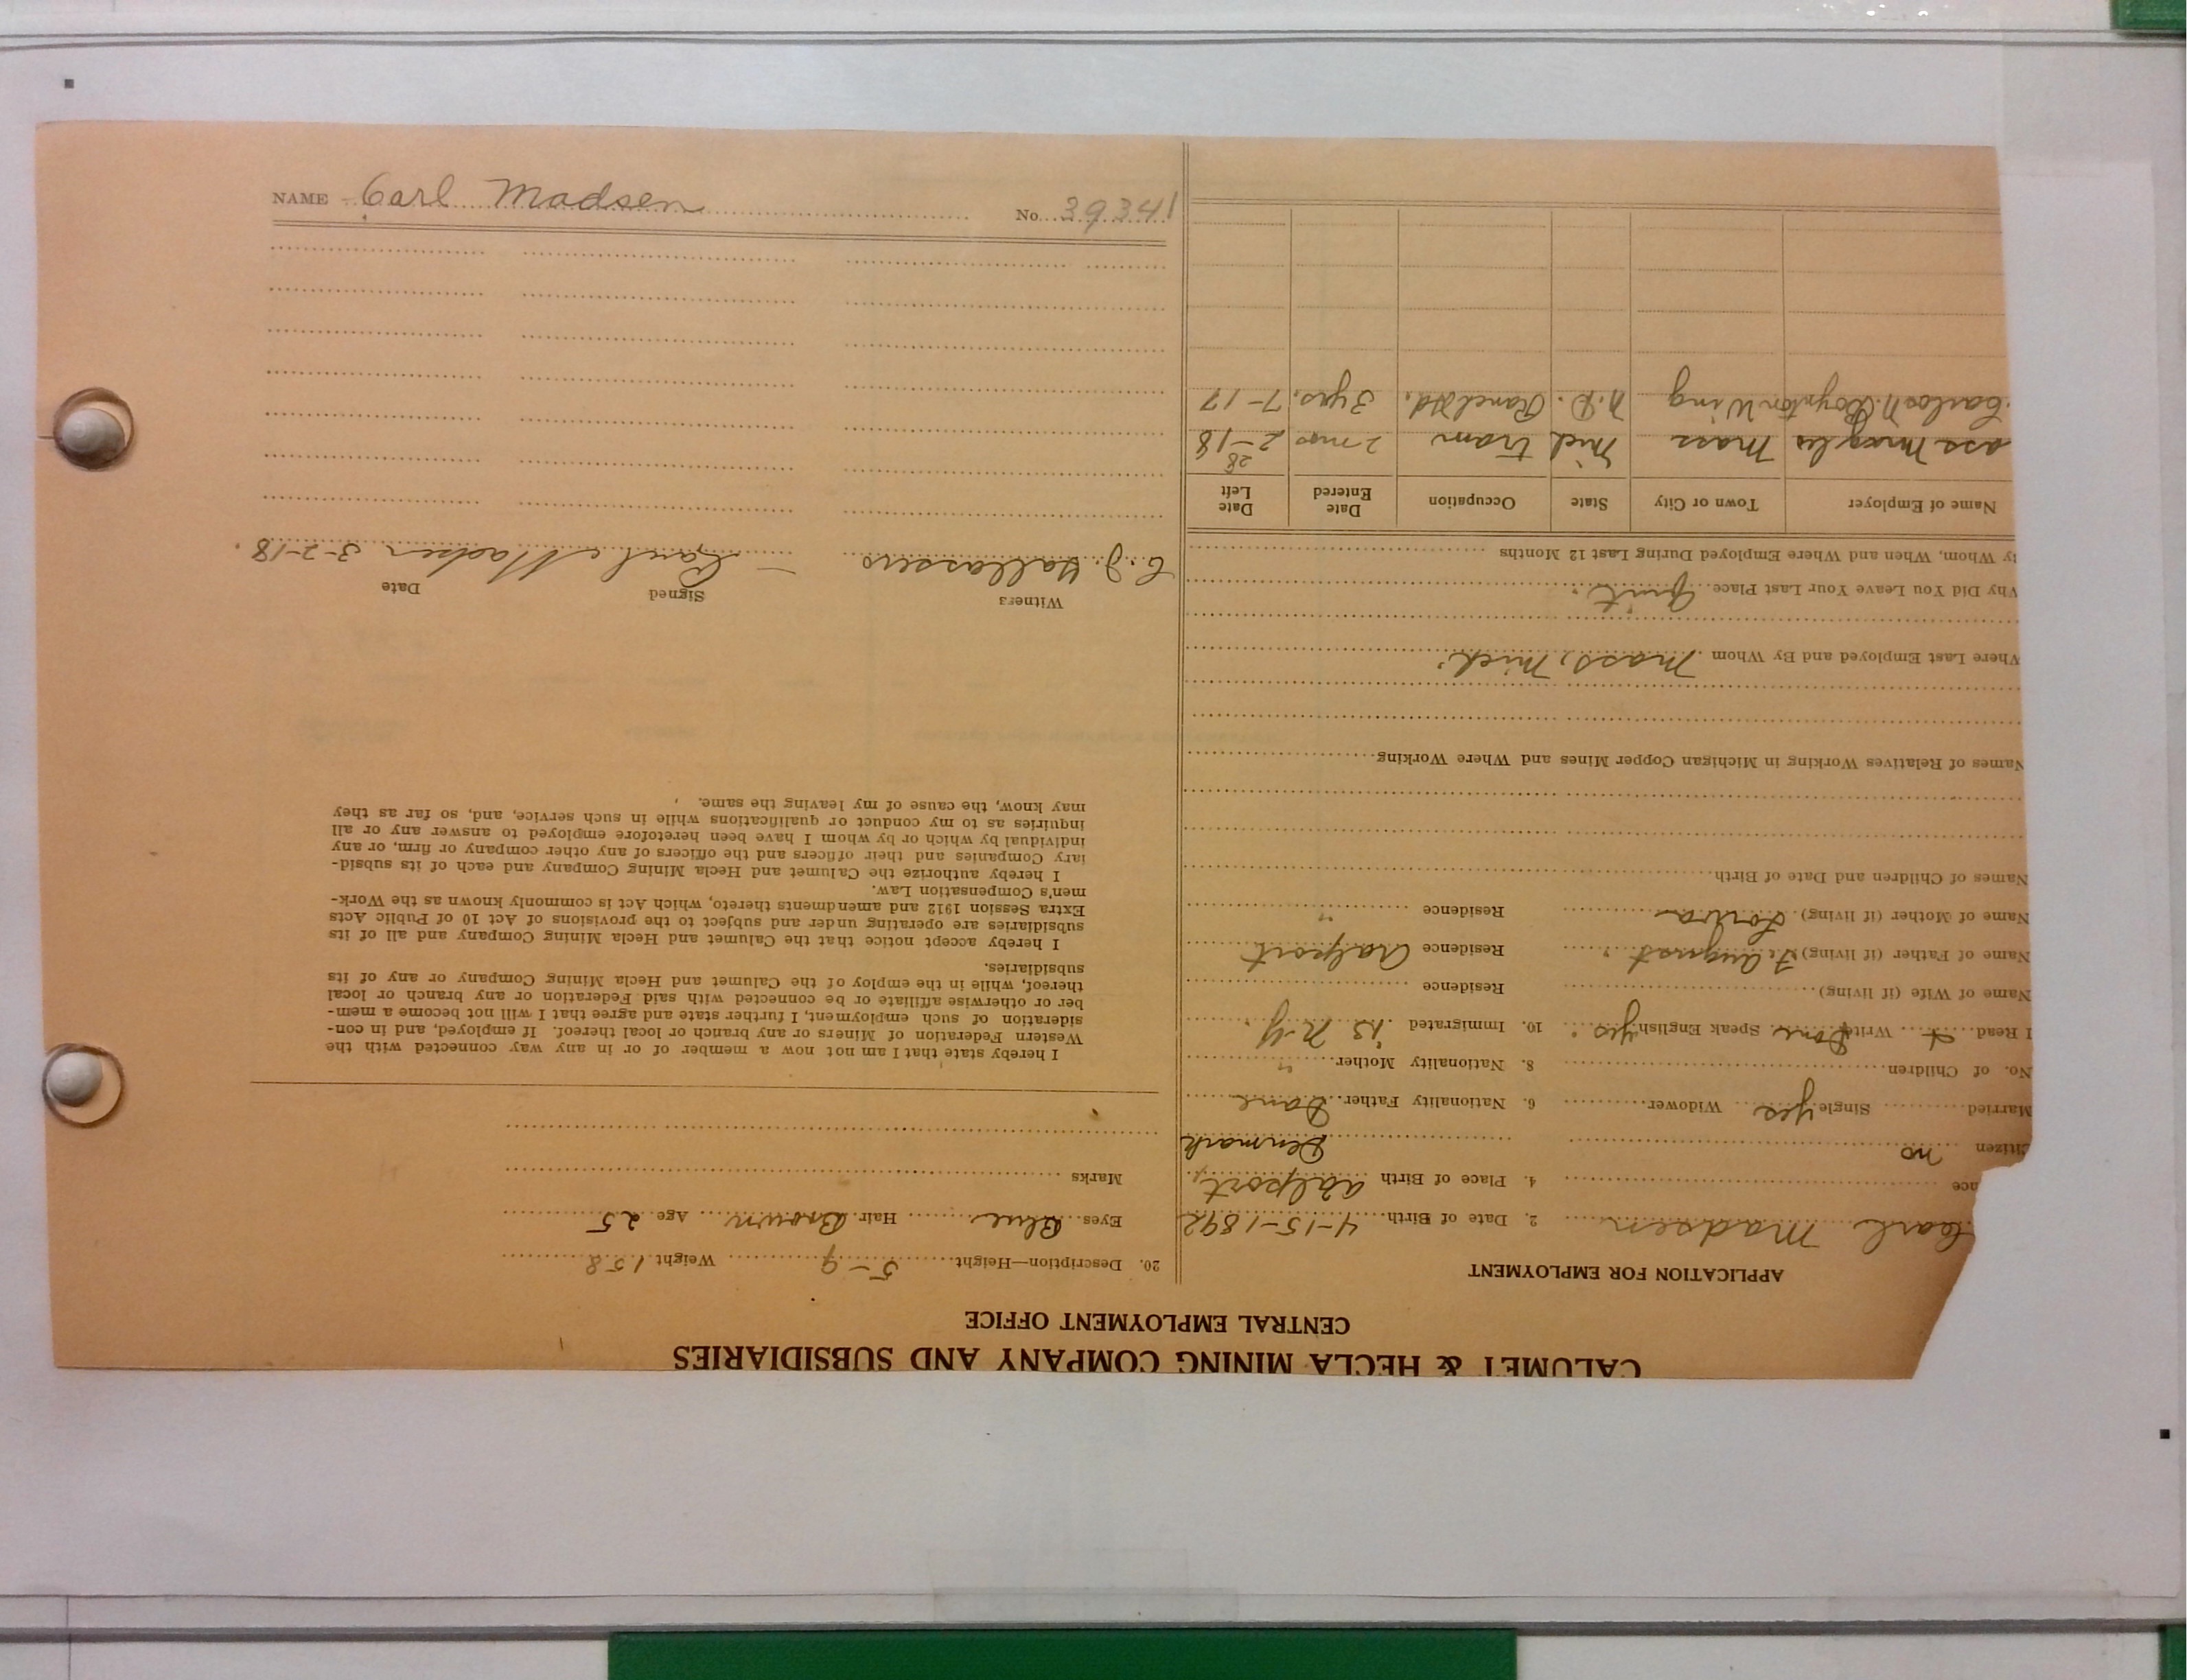 NAME Carl Madsen No. 39341
CALUMET & HECLA MINING COMPANY AND SUBSIDIARIES
CENTRAL EMPLOYMENT OFFICE
APPLICATION FOR EMPLOYMENT
Carl Madsen 2. Date of Birth 4-15-1892
nce 4. Place of Birth Aalport,
itizen no Denmark
Married Single yes Widower 6. Nationality Father Dane
No. of Children 8. Nationality Mother "
I Read Write Dane Speak English yes 10. Immigrated '13 N.Y.
Name of Wife (if living) Residence
Name of Father (if living) F. August Residence Aalport
Name of Mother (if living) Residence "
Names of Children and Date of Birth
Names of Relatives Working in Michigan Copper Mines and Where Working
Where Last Employed and By Whom Mass, Mich.
Why Did You Leave Your Last Place Quit.
By Whom, When and Where Employed During Last 12 Months
Name of Employer Town or City State Occupation Date Entered Date Left
ass Mass Mich tram 2 mos 2-28-18
Carlos N. Boynton Wing N.D. Ranch Hd. 3 yrs. 7-17
20. Description—Height 5-9 Weight 158
Eyes Blue Hair Brown Age 25
Marks
I hereby state that I am not now a member of or in any way connected with the
Western Federation of Miners or any branch or local thereof. If employed, and in con-
sideration of such employment, I further state and agree that I will not become a mem-
ber or otherwise affiliate or be connected with said Federation or any branch or local
thereof, while in the employ of the Calumet and Hecla Mining Company or any of its
subsidiaries.
I hereby accept notice that the Calumet and Hecla Mining Company and all of its
subsidiaries are operating under and subject to the provisions of Act 10 of Public Acts
Extra Session 1912 and amendments thereto, which Act is commonly known as the Work-
men's Compensation Law.
I hereby authorize the Calumet and Hecla Mining Company and each of its subsid-
iary Companies and their officers and the officers of any other company or firm, or any
individual by which or by whom I have been heretofore employed to answer any or all
inquiries as to my conduct or qualifications while in such service, and, so far as they
may know, the cause of my leaving the same.
Witness Signed Date
C. J. Carl Madsen 3-2-18.